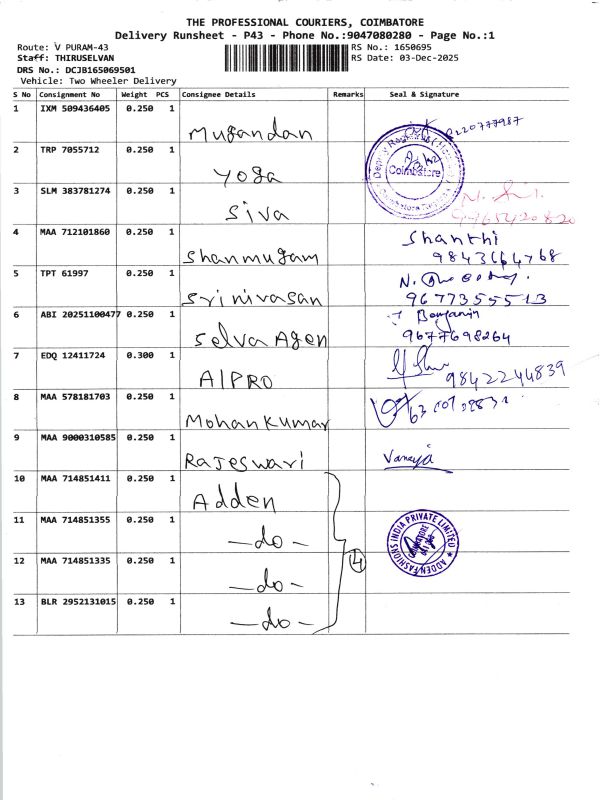 THE PROFESSIONAL COURIERS, COIMBATORE
Delivery Runsheet - P43 - Phone No.:9047080280 - Page No.:1
Route: V PURAM-43 RS No.: 1650695
Staff: THIRUSELVAN RS Date: 03-Dec-2025
DRS No.: DCJB165069501
Vehicle: Two Wheeler Delivery
S No Consignment No Weight PCS Consignee Details Remarks Seal & Signature
1 IXM 509436405 0.250 1 Mugandan
2 TRP 7055712 0.250 1 Yoga Coimbatore
3 SLM 383781274 0.250 1 Siva
4 MAA 712101860 0.250 1 Shanmugam Shanthi
9843664768
5 TPT 61997 0.250 1 Srinivasan N.
9677355513
6 ABI 20251100477 0.250 1 Selva Agen Benjamin
9677698264
7 EDQ 12411724 0.300 1 AIPRO 9842244839
8 MAA 578181703 0.250 1 Mohan Kumar
9 MAA 9000310585 0.250 1 Rajeswari
10 MAA 714851411 0.250 1 Adden
11 MAA 714851355 0.250 1 -do- ADDEN FASHIONS INDIA PRIVATE LIMITED
12 MAA 714851335 0.250 1 -do- 4
13 BLR 2952131015 0.250 1 -do-